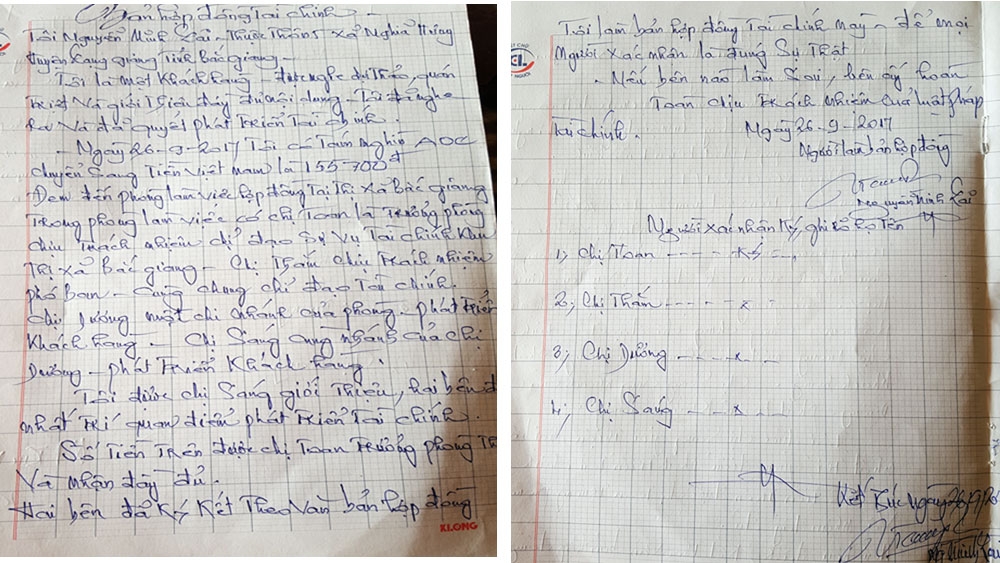 Bản hợp đồng Tài chính
Tôi Nguyễn Minh Lai - Thuộc Thôn 5 xã Nghĩa Hưng
Huyện Lạng giang Tỉnh Bắc giang -
Tôi là một Khách hang - được nghe dự Thảo, quán
Triệt Và giới Thiệu đầy đủ nội dung - Tôi đã nghe
Rõ Và đã quyết phát Triển Tài chính.
- Ngày 26-9-2017 Tôi có Tám nghìn
chuyển Sang Tiền Việt nam là 155 700 đ
Đem đến phòng làm việc hợp đồng Tại Thị xã Bắc giang
Trong phòng làm việc có chị Toan là Trưởng phòng
chịu Trách nhiệm chỉ đạo Sự Vụ Tài chính Khu
Thị xã Bắc giang - Chị Thấm chịu Trách nhiệm
phó ban - cùng chung chỉ đạo Tài chính.
Chị Dưỡng một chi nhánh của phòng - phát Triển
Khách hang - Chị Sáng cùng nhánh của chị
Dưỡng - phát Triển Khách hang.
Tôi được chị Sang giới Thiệu, hai bên đ
nhất Trí quan điểm phát Triển Tài chính.
Số Tiền Trên được chị Toan Trưởng phong Th
Và nhận đầy đủ.
Hai bên đã Ký Kết Theo Văn bản hợp đồng
KLONG
Tôi làm bản hợp đồng Tài chính này - để mọi
Người Xác nhận là đúng Sự Thật
- Nếu bên nào làm Sai, bên ấy hoàn
Toàn chịu Trách nhiệm của luật pháp
Tài chính.
Ngày 26-9-2017
Người làm bản hợp đồng
Nguyễn Minh Lai
Người xác nhận Ký, ghi rõ họ Tên
1, Chị Toan - - - - Ký - -
2, Chị Thấm - - - - x -
3, Chị Dưỡng - - - x - -
4, Chị Sáng - - x - -
Kết Thúc Ngày 26/9/20